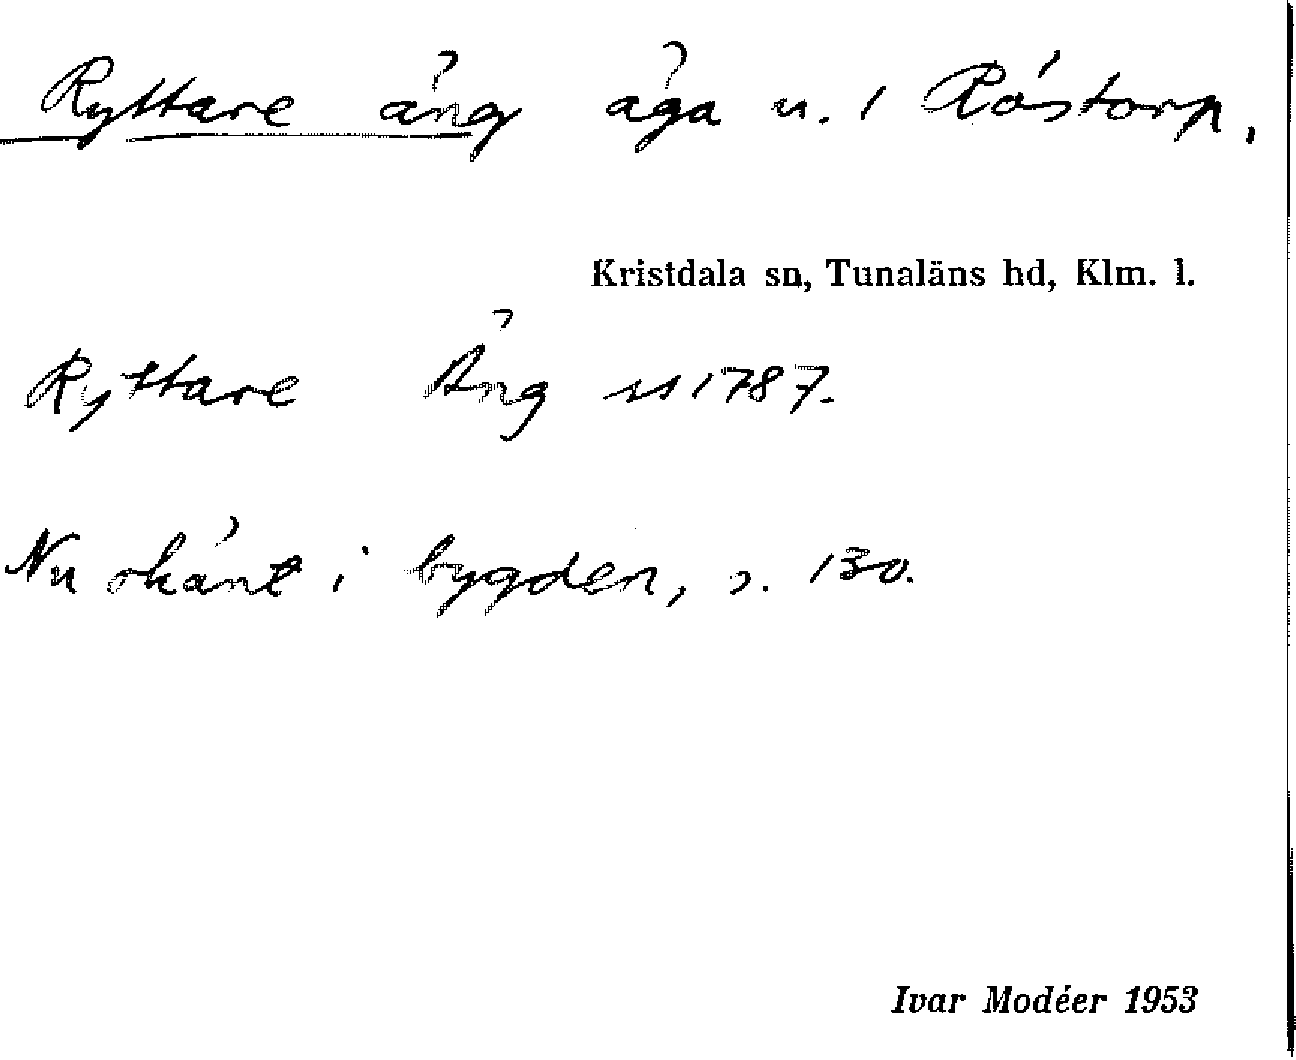 Ryttare äng äga u. 1 Röstorp.
Kristdala sn, Tunaläns hd, Klm. l.
Ryttare Äng ss 1787.
Nu okänt i bygden, s. 130.
Ivar Modéer 1953